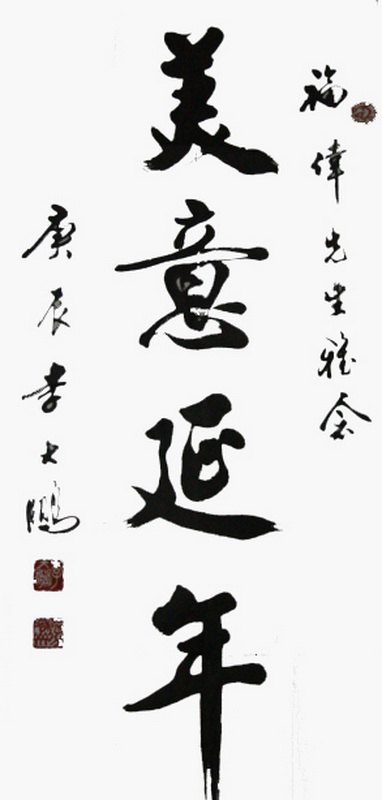 福偉先生雅念
美意延年
庚辰李大鵬